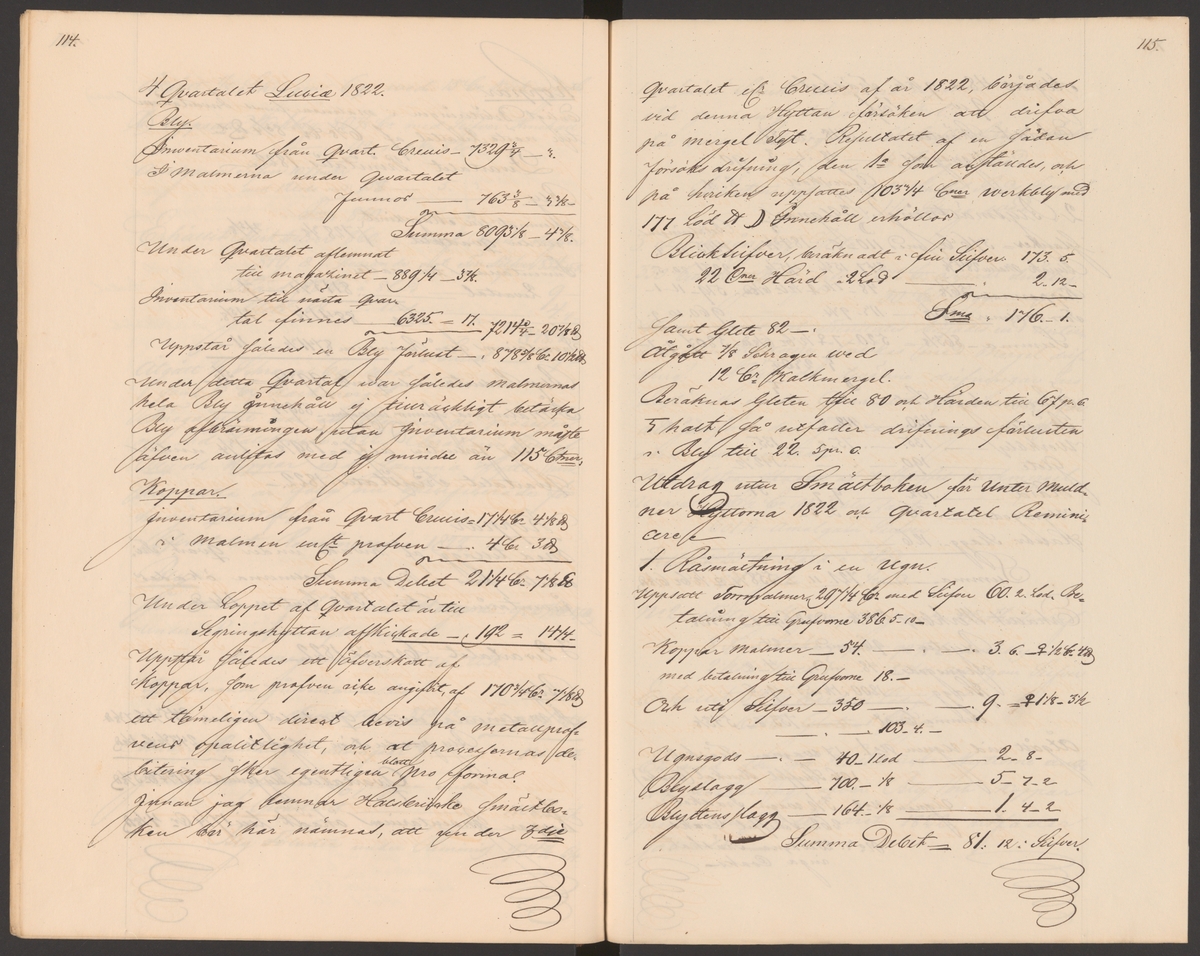 114.
4 Qvartalet Luciæ 1822.
Bly.
Inventarium från Qvart. Crucis — 7329 3/4 —
I Malmerna under Qvartalet
funnos — 763 3/8 —
Summa 8093 1/8 — 4 3/8.
Under Qvartalet aflemnat
till magazinet — 889 1/4 — 3 3/8.
Inventarium till nästa Qvar-
tal finnes — 6325 = 17. 7214 — 20 7/8 ℔
Uppstår således en Bly förlust — . 878 Cr 10 ℔
Under detta Qvartal war således malmernas
hela Bly innehåll ej tillräckligt betäcka
Bly afbränningen, utan Inventarium måste
äfven anlitas med ej mindre än 115 Ctner.
Koppar.
Inventarium från Qvart Crucis = 17 1/4 Cr 4 1/8 ℔
i Malmen enlt profven — . 4 Cr 3 ℔
Summa Debet 21 1/4 Cr 7 1/8 ℔
Under Loppet af Qvartalet är till
Segringshyttan afskickade — , 192 = 14 1/4 —
Uppstår således ett öfverskott af
Koppar, som profven icke angifvit, af 170 3/4 Cr 7 1/8 ℔
ett tämeligen direct bevis på metallprof-
vens opålitlighet, och at processernas de-
bitering sker egentligen blott pro forma.
Innan jag lemnar Halsbrücke smältbo-
ken bör här nämnas, att under 3die
115.
Qvartalet eller Crucis af år 1822, började
vid denna Hyttan försöken att drifva
på mergel Test. Resultatet af en sådan
försöksdrifning, den 1a som anställdes, och
på hvilken uppsattes 103 3/4 Ctner werkbly med
177 Löd ℔ ☽ Innehåll erhöllos
Blicksilfver, beräknadt i fin Silfver 173. 5.
22 Ctner Härd à 2 Lod — 2. 12 —
Sma . 176. — 1.
Samt Glete 82 — .
Åtgått 7/8 Schragen wed
12 Cr Kalkmergel.
Beräknas Gleten till 80 och Härden till 67 p. c.
♄ halt, så utfaller drifnings förlusten
i Bly till 22. 5 pr. c.
Utdrag utur Smältboken för Unter Muld-
ner Hyttorna 1822 och Qvartalet Remini-
cere
1. Råsmältning i en Ugn.
Uppsatt Torrmalmer, 2971/4 Cr med Silfver 60. 2. Lod. Be-
talning till Grufvorne 386 5. 10 —
Koppar Malmer — 54. — . — . 3. 6. — ♀ 1/2 Cr. 4 ℔
med betalning till Grufvorne 18. —
Och utij Silfver — 350 — . — . 9. = ♀ 1 1/8 — 3 1/2
— . — . 103. 4. —
Ugnsgods — . — 40. Lod — 2 — 8 —
Blyslagg — 700. — 1/8 — 5 — 7 — 2
Blystensslagg — 164. 1/8 — 1. 4 — 2
Summa Debet = 81. 12. : Silfver.